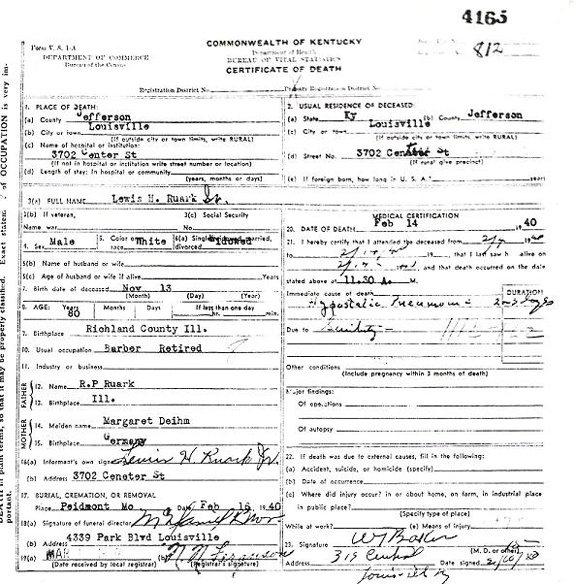 4165
812
Form V. S. 1-A
DEPARTMENT OF COMMERCE
Bureau of the Census
COMMONWEALTH OF KENTUCKY
Department of Health
BUREAU OF VITAL STATISTICS
CERTIFICATE OF DEATH
Registration District No.
Primary Registration District No.
1. PLACE OF DEATH:
(a) County Jefferson
(b) City or town Louisville
(If outside city or town limits, write RURAL)
(c) Name of hospital or institution:
3702 Center St
(If not in hospital or institution write street number or location)
(d) Length of stay: In hospital or community
(years, months or days)
2. USUAL RESIDENCE OF DECEASED:
(a) State Ky (b) County Jefferson
(c) City or town Louisville
(If outside city or town limits, write RURAL)
(d) Street No. 3702 Center St
(If rural give precinct)
(e) If foreign born, how long in U. S. A.? years
3(a) FULL NAME Lewis H. Ruark Sr.
3(b) If veteran, Name war No.
3(c) Social Security
4. Sex Male 5. Color or race White 6(a) Single, widowed, married, divorced Widowed
6(b) Name of husband or wife
6(c) Age of husband or wife if alive Years
7. Birth date of deceased Nov 13
(Month) (Day) (Year)
8. AGE: Years 80 If less than one day hr. min.
9. Birthplace Richland County Ill.
10. Usual occupation Barber Retired
11. Industry or business
FATHER
12. Name R.P Ruark
13. Birthplace Ill.
MOTHER
14. Maiden name Margaret Deihm
15. Birthplace Germany
16(a) Informant's own signature Lewis H Ruark Jr.
(b) Address 3702 Ceneter St
17. BURIAL, CREMATION, OR REMOVAL
Place Peidmont Mo Date Feb 16, 1940
18(a) Signature of funeral director
(b) Address 4339 Park Blvd Louisville
19(a) MAR
(Date received by local registrar)
(b) N N Ferguson
(Registrar's signature)
MEDICAL CERTIFICATION
20. DATE OF DEATH Feb 14 1940
21. I hereby certify that I attended the deceased from 2/7 1940
to , that I saw h alive on
, and that death occurred on the date
stated above at 11.30 A. M.
Immediate cause of death
Hypostatic Pneumonia
DURATION
2 days
Due to Senility
Other conditions
(Include pregnancy within 3 months of death)
Major findings:
Of operations
Of autopsy
22. If death was due to external causes, fill in the following:
(a) Accident, suicide, or homicide (specify)
(b) Date of occurrence
(c) Where did injury occur? in or about home, on farm, in industrial place
in public place?
(Specify type of place)
While at work? (e) Means of injury
23. Signature
(M. D. or other)
Address 319 Central Date signed
Louisville Ky